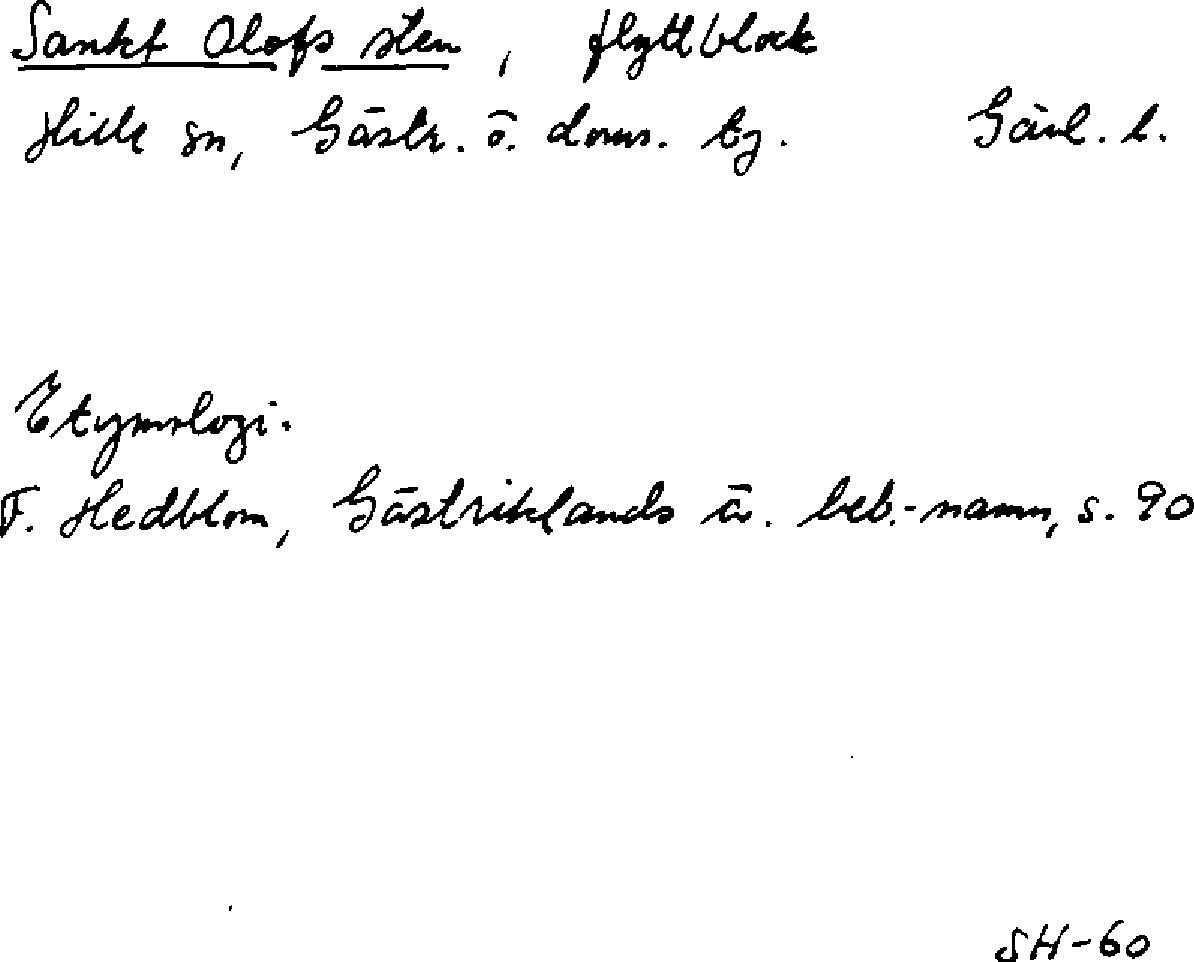 Sankt Olofs sten, flyttblock
Hille sn, Gästr. ö. doms. tg. Gävl. l.
Etymologi.
F. Hedblom, Gästriklands ä. beb.-namn, s. 90
SH-60